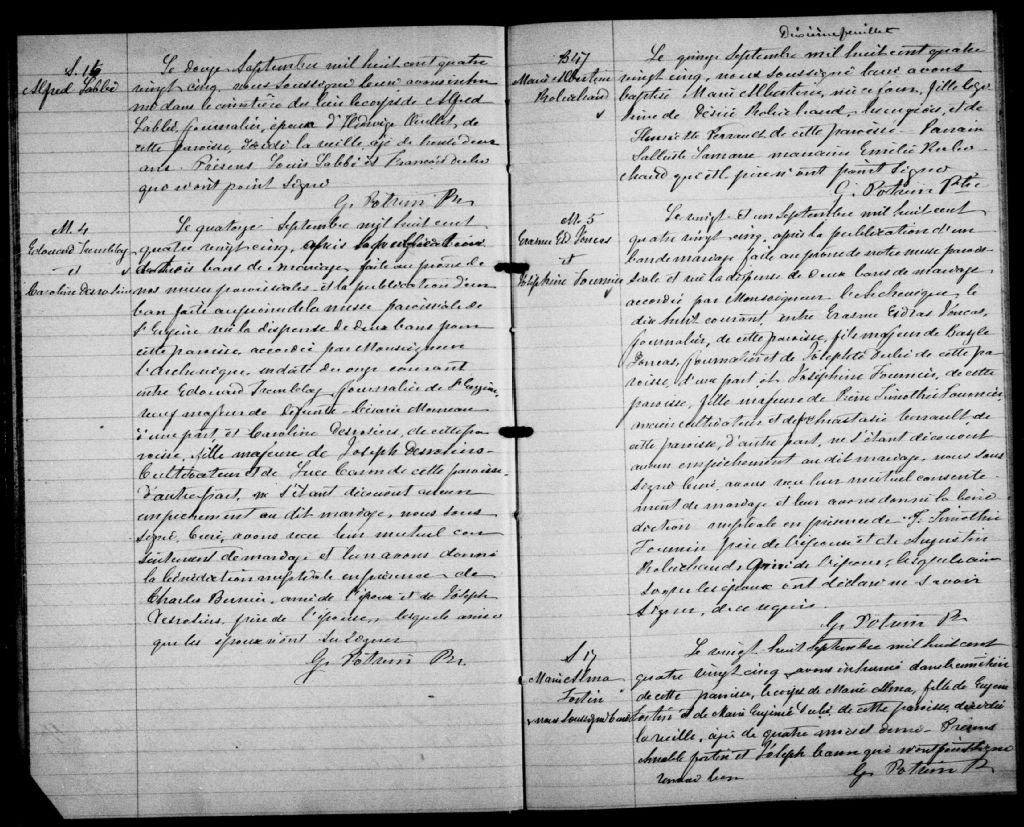 S. 16
Alfred Labbé
Le douze Septembre mil huit cent quatre
vingt cinq, nous soussigné curé avons inhu
mé dans le cimetière du lieu le corps de Alfred
Labbé, journalier, époux d'Hedwige Ouellet, de
cette paroisse, décédé la veille, agé de trente deux
ans. Présens Louis Labbé et François
qui n'ont point signé
G. Potvin Ptre
M. 4
Edouard Tremblay
et
Caroline Desrosiers
Le quatorze Septembre mil huit cent
quatre vingt cinq, après la publication
de trois bans de mariage faite au prône de
nos messes paroissiales et la publication d'un
ban faite au prône de la messe paroissiale de
St Eugène vu la dispense de deux bans pour
cette paroisse accordée par Monseigneur
l'Archevêque, en date du onze courant
entre Edouard Tremblay journalier de St Eugène,
veuf majeur de défunte Césarie Morneau
d'une part, et Caroline Desrosiers, de cette pa
roisse, fille majeure de Joseph Desrosiers
Cultivateur et de Luce Caron de cette paroisse
d'autre part, ne s'étant découvert aucun
empêchement au dit mariage, nous sous
signé, Curé, avons reçu leur mutuel con
sentement de mariage et leur avons donné
la bénédiction nuptiale en présence de
Charles Bernier, ami de l'époux et de Joseph
Desrosiers, père de l'épouse, lesquels ainsi
que les époux n'ont su signer
G. Potvin Ptr.
Dixième feuillet
B 47
Marie Albertine
Robichaud
Le quinze Septembre mil huit cent quatre
vingt cinq, nous soussigné curé avons
baptisé Marie Albertine, née ce jour, fille légi
time de Désiré Robichaud, bourgeois, et de
Henriette Perrault de cette paroisse. Parrain
Salluste Lamarre marraine Emilie Robi
chaud qui et le père n'ont point signé
G. Potvin Ptre
M. 5
Erasme Esd. Joncas
et
Joséphine Fournier
Le vingt et un Septembre mil huit cent
quatre vingt cinq, après la publication d'un
ban de mariage faite au prône de notre messe parois
siale et vu la dispense de deux bans de mariage
accordée par Monseigneur l'Archevêque, le
dix huit courant, entre Erasme Esdras Joncas,
journalier, de cette paroisse, fils majeur de Basyle
Joncas, journalier et de Joséphte Dubé de cette pa
roisse, d'une part et Joséphine Fournier, de cette
paroisse, fille majeure de Pierre Timothée Fournier,
ancien cultivateur et de Anastasie Perrault, de
cette paroisse, d'autre part, ne s'étant découvert
aucun empêchement au dit mariage, nous sous
signé Curé, avons reçu leur mutuel consente
ment de mariage et leur avons donné la béné
diction nuptiale en présence de P. Timothée
Fournier père de l'épouse et de Augustin
Robichaud ami de l'époux, lesquels ain
si que les époux ont déclaré ne savoir
signer, de ce requis.
G. Potvin Pr.
S 17
Marie Alma
Fortin
nous soussigné curé
Le vingt huit Septembre mil huit cent
quatre vingt cinq avons inhumé dans le cimetière
de cette paroisse, le corps de Marie Alma, fille de Eugène
Fortin et de Marie Eugénie Dubé, de cette paroisse, décédée
la veille, agée de quatre mois et demi. Présens
Amable Fortin et Joseph Caron qui n'ont point signé
Renvoi bon
G. Potvin Pr